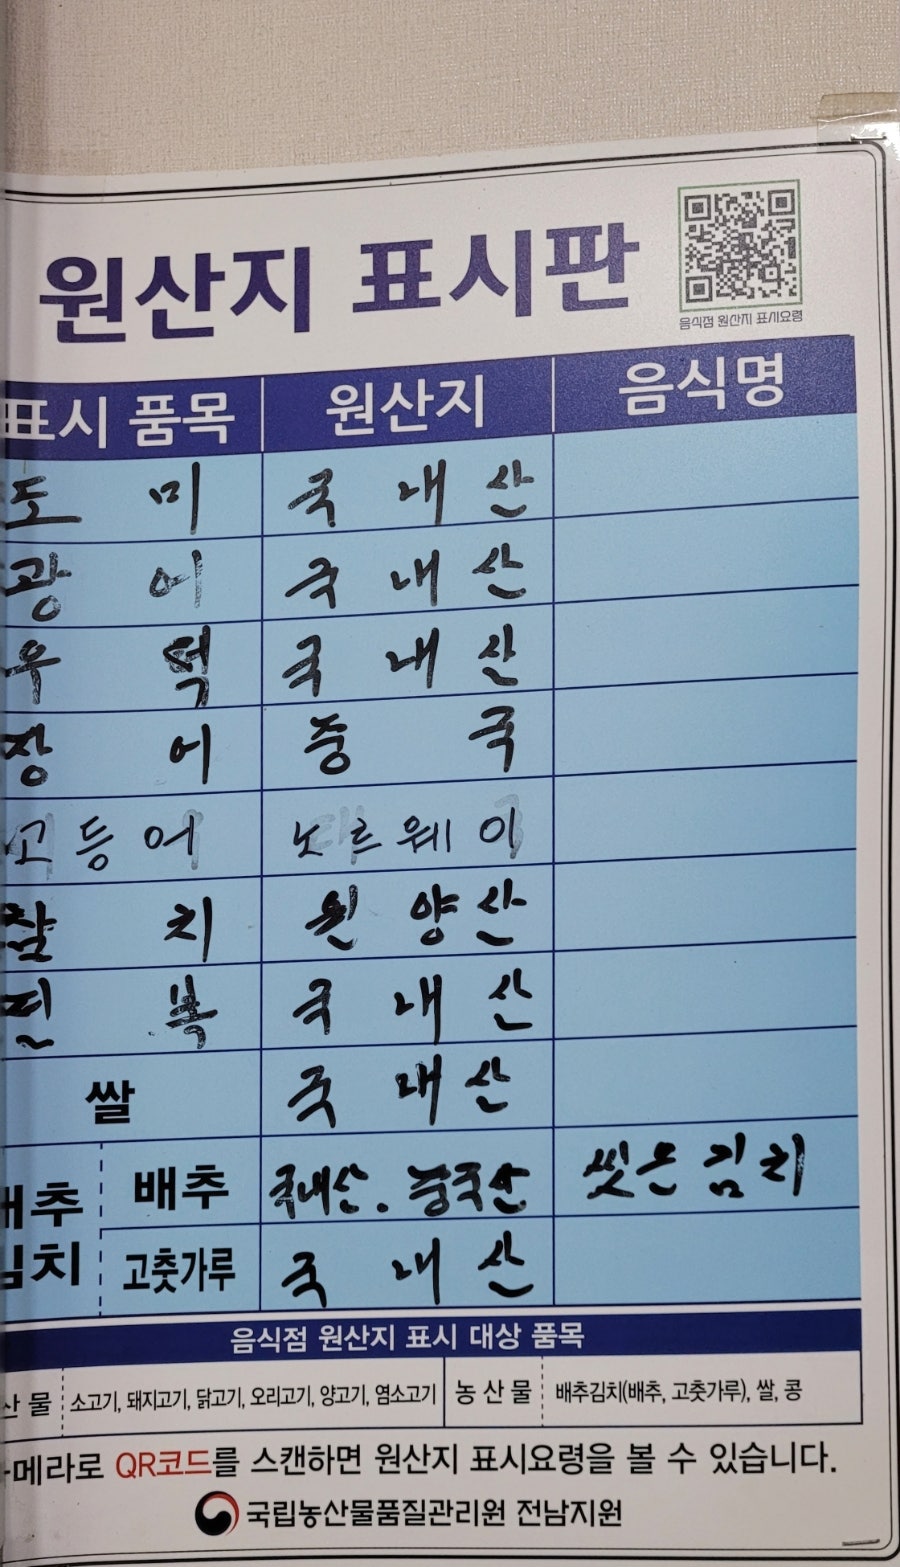 원산지 표시판
음식점 원산지 표시요령
표시 품목 원산지 음식명
도미 국내산
광어 국내산
우럭 국내산
장어 중국
고등어 노르웨이
참치 원양산
전복 국내산
쌀 국내산
배추김치 배추 국내산. 중국산 씻은 김치
고춧가루 국내산
음식점 원산지 표시 대상 품목
산물 소고기, 돼지고기, 닭고기, 오리고기, 양고기, 염소고기 농산물 배추김치(배추, 고춧가루), 쌀, 콩
메라로 QR코드를 스캔하면 원산지 표시요령을 볼 수 있습니다.
국립농산물품질관리원 전남지원